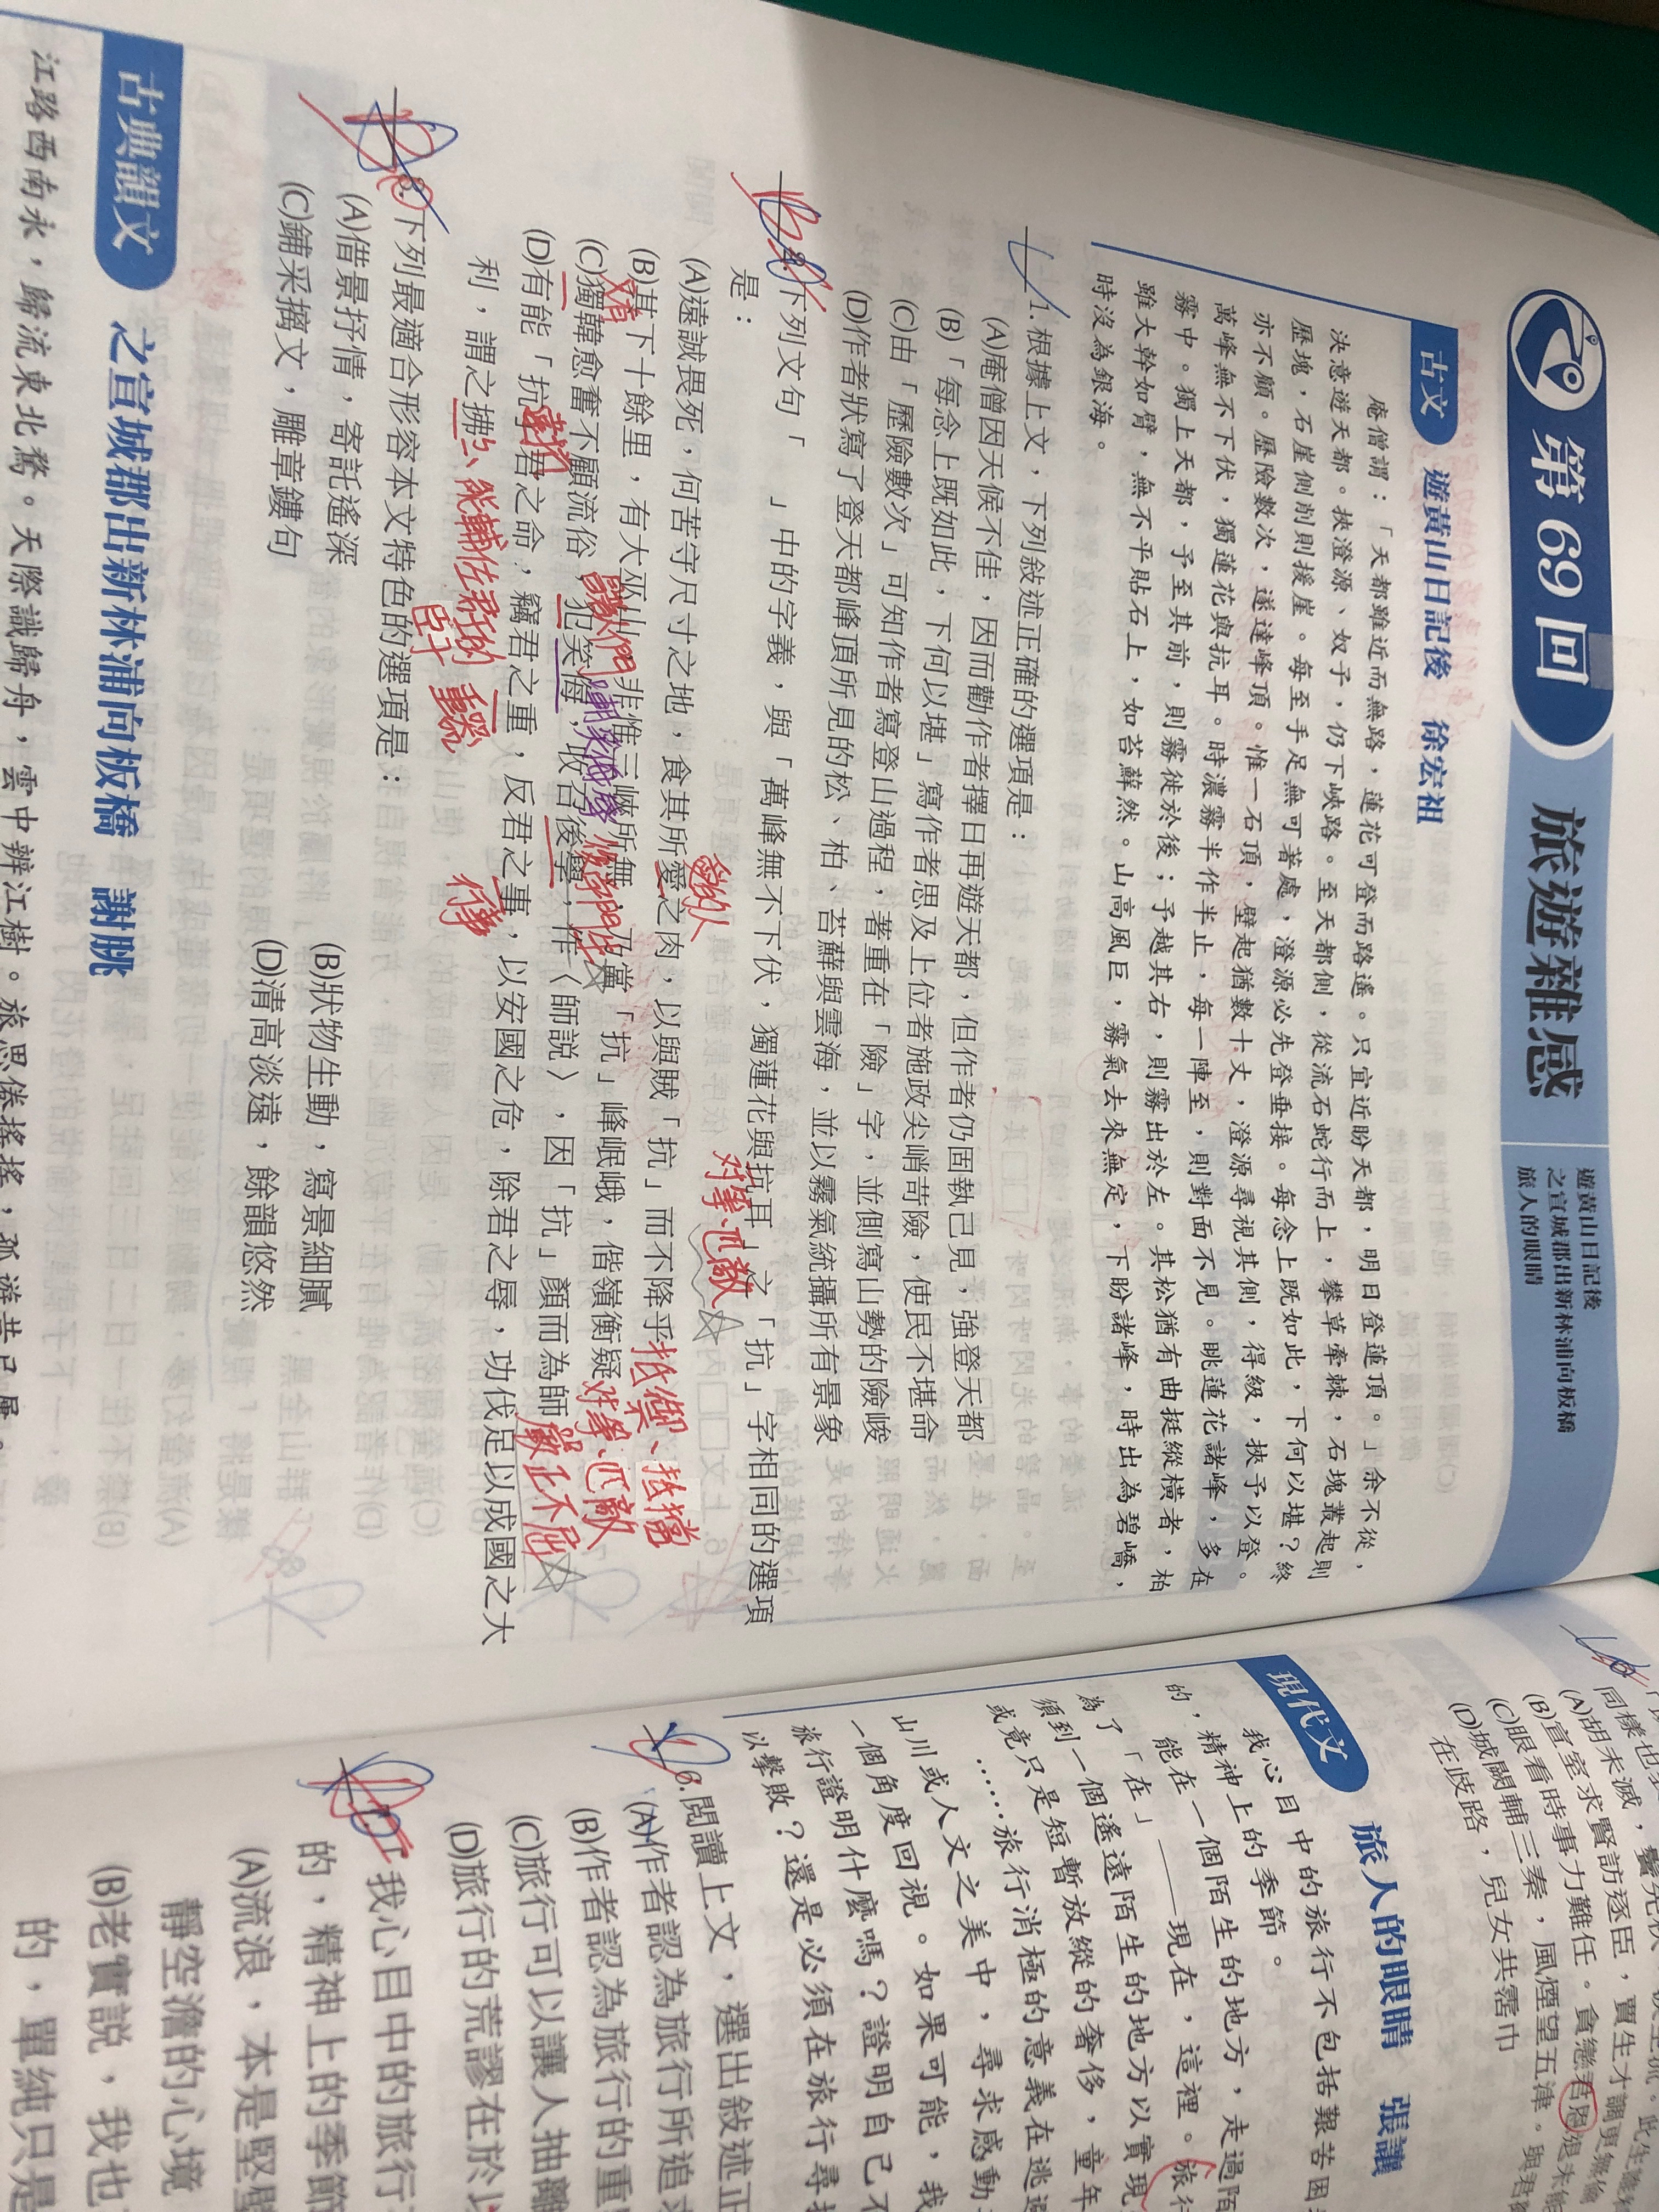 第69回 旅遊雜感
遊黃山日記後
之宣城郡出新林浦向板橋
旅人的眼睛
古文 遊黃山日記後 徐宏祖
庵僧謂：「天都雖近而無路，蓮花可登而路遙。只宜近盼天都，明日登蓮頂。」余不從，
決意遊天都。挾澄源、奴子，仍下峽路。至天都側，從流石蛇行而上，攀草牽棘，石塊叢起則
歷塊，石崖側削則援崖。每至手足無可著處，澄源必先登垂接。每念上既如此，下何以堪？終
亦不顧。歷險數次，遂達峰頂。惟一石頂，壁起猶數十丈，澄源尋視其側，得級，挾予以登。
萬峰無不下伏，獨蓮花與抗耳。時濃霧半作半止，每一陣至，則對面不見。眺蓮花諸峰，多在
霧中。獨上天都，予至其前，則霧徙於後；予越其右，則霧出於左。其松猶有曲挺縱橫者，柏
雖大幹如臂，無不平貼石上，如苔蘚然。山高風巨，霧氣去來無定，下盼諸峰，時出為碧嶠，
時沒為銀海。
1.根據上文，下列敘述正確的選項是：
(A)庵僧因天候不佳，因而勸作者擇日再遊天都，但作者仍固執己見，強登天都
(B)「每念上既如此，下何以堪」寫作者思及上位者施政尖峭苛險，使民不堪命
(C)由「歷險數次」可知作者寫登山過程，著重在「險」字，並側寫山勢的險峻
(D)作者狀寫了登天都峰頂所見的松、柏、苔蘚與雲海，並以霧氣統攝所有景象
2.下列文句「　」中的字義，與「萬峰無不下伏，獨蓮花與抗耳」之「抗」字相同的選項
是：
對等、匹敵
(A)遠誠畏死，何苦守尺寸之地，食其所愛之肉，以與賊「抗」而不降乎
愛的人
抵禦、抵擋
(B)其下十餘里，有大巫山，非惟三峽所無，乃當「抗」峰岷峨，偕嶺衡疑
對等、匹敵
(C)獨韓愈奮不顧流俗，犯笑侮，收召後學，作〈師說〉，因「抗」顏而為師
嚴正不屈
(D)有能「抗」君之命，竊君之重，反君之事，以安國之危，除君之辱，功伐足以成國之大
行事
利，謂之拂
能輔佐君的
3.下列最適合形容本文特色的選項是：
(A)借景抒情，寄託遙深
(B)狀物生動，寫景細膩
(C)鋪采摛文，雕章鏤句
(D)清高淡遠，餘韻悠然
古典韻文 之宣城郡出新林浦向板橋 謝朓
江路西南永，歸流東北騖。天際識歸舟，雲中辨江樹。旅思倦搖搖，孤遊昔已屢。
(A)胡未滅，鬢先秋
(B)宣室求賢訪逐臣，賈生才調更無倫
(C)眼看時事力難任。貪戀君恩退未能
(D)城闕輔三秦，風煙望五津。與君
在歧路，兒女共霑巾
現代文 旅人的眼睛 張讓
我心目中的旅行不包括艱苦困
的，精神上的季節。
能在一個陌生的地方，走過陌
為了「在」——現在，這裡。旅行
須到一個遙遠陌生的地方以實現
或竟只是短暫放縱的奢侈，童年
……旅行消極的意義在逃避
山川或人文之美中，尋求感動
一個角度回視。如果可能，我
旅行證明什麼嗎？證明自己不
以擊敗？還是必須在旅行尋找
6.閱讀上文，選出敘述正
(A)作者認為旅行所追求
(B)作者認為旅行的重
(C)旅行可以讓人抽離
(D)旅行的荒謬在於以
「我心目中的旅行
的，精神上的季節
(A)流浪，本是堅壁
靜空澹的心境
(B)老實說，我也
的，單純只是